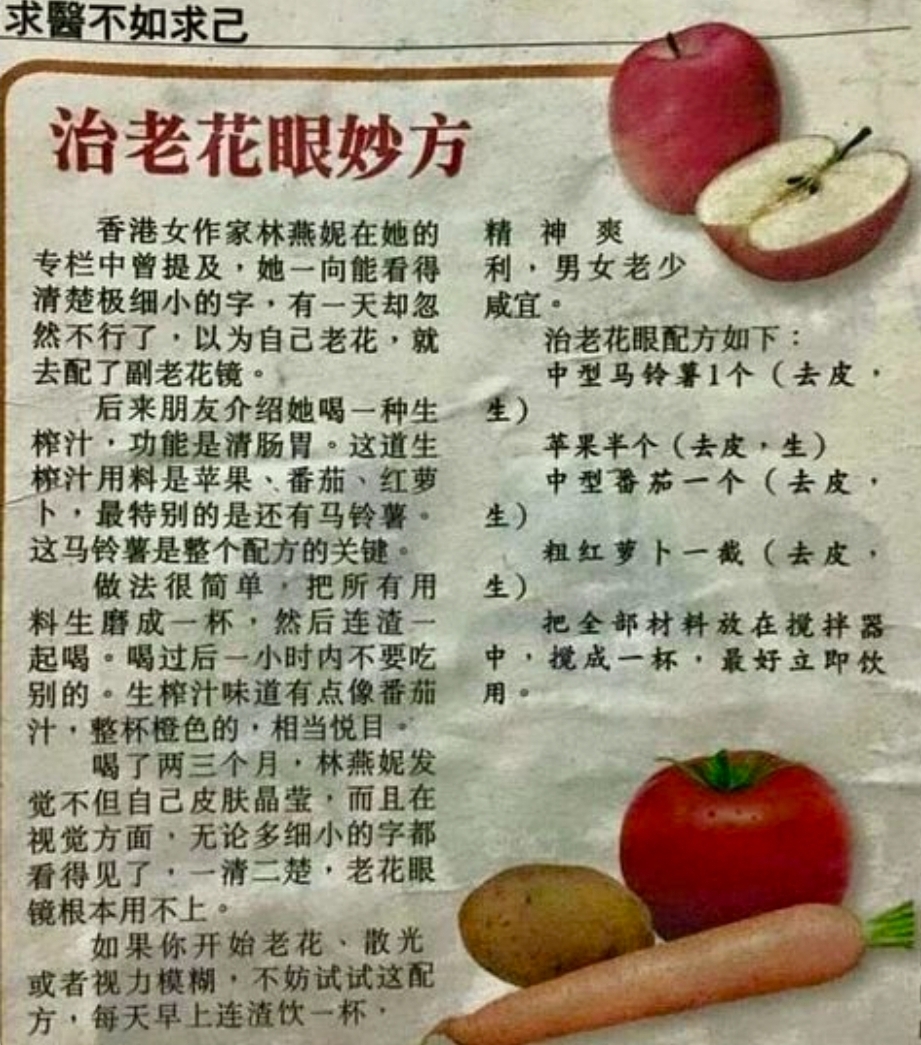 求醫不如求己
治老花眼妙方
香港女作家林燕妮在她的
专栏中曾提及，她一向能看得
清楚极细小的字，有一天却忽
然不行了，以为自己老花，就
去配了副老花镜。
后来朋友介绍她喝一种生
榨汁，功能是清肠胃。这道生
榨汁用料是苹果、番茄、红萝
卜，最特别的是还有马铃薯。
这马铃薯是整个配方的关键。
做法很简单，把所有用
料生磨成一杯，然后连渣一
起喝。喝过后一小时内不要吃
别的。生榨汁味道有点像番茄
汁，整杯橙色的，相当悦目。
喝了两三个月，林燕妮发
觉不但自己皮肤晶莹，而且在
视觉方面，无论多细小的字都
看得见了，一清二楚，老花眼
镜根本用不上。
如果你开始老花、散光
或者视力模糊，不妨试试这配
方，每天早上连渣饮一杯，
精神爽
利，男女老少
咸宜。
治老花眼配方如下：
中型马铃薯1个（去皮，
生）
苹果半个（去皮，生）
中型番茄一个（去皮，
生）
粗红萝卜一截（去皮，
生）
把全部材料放在搅拌器
中，搅成一杯，最好立即饮
用。